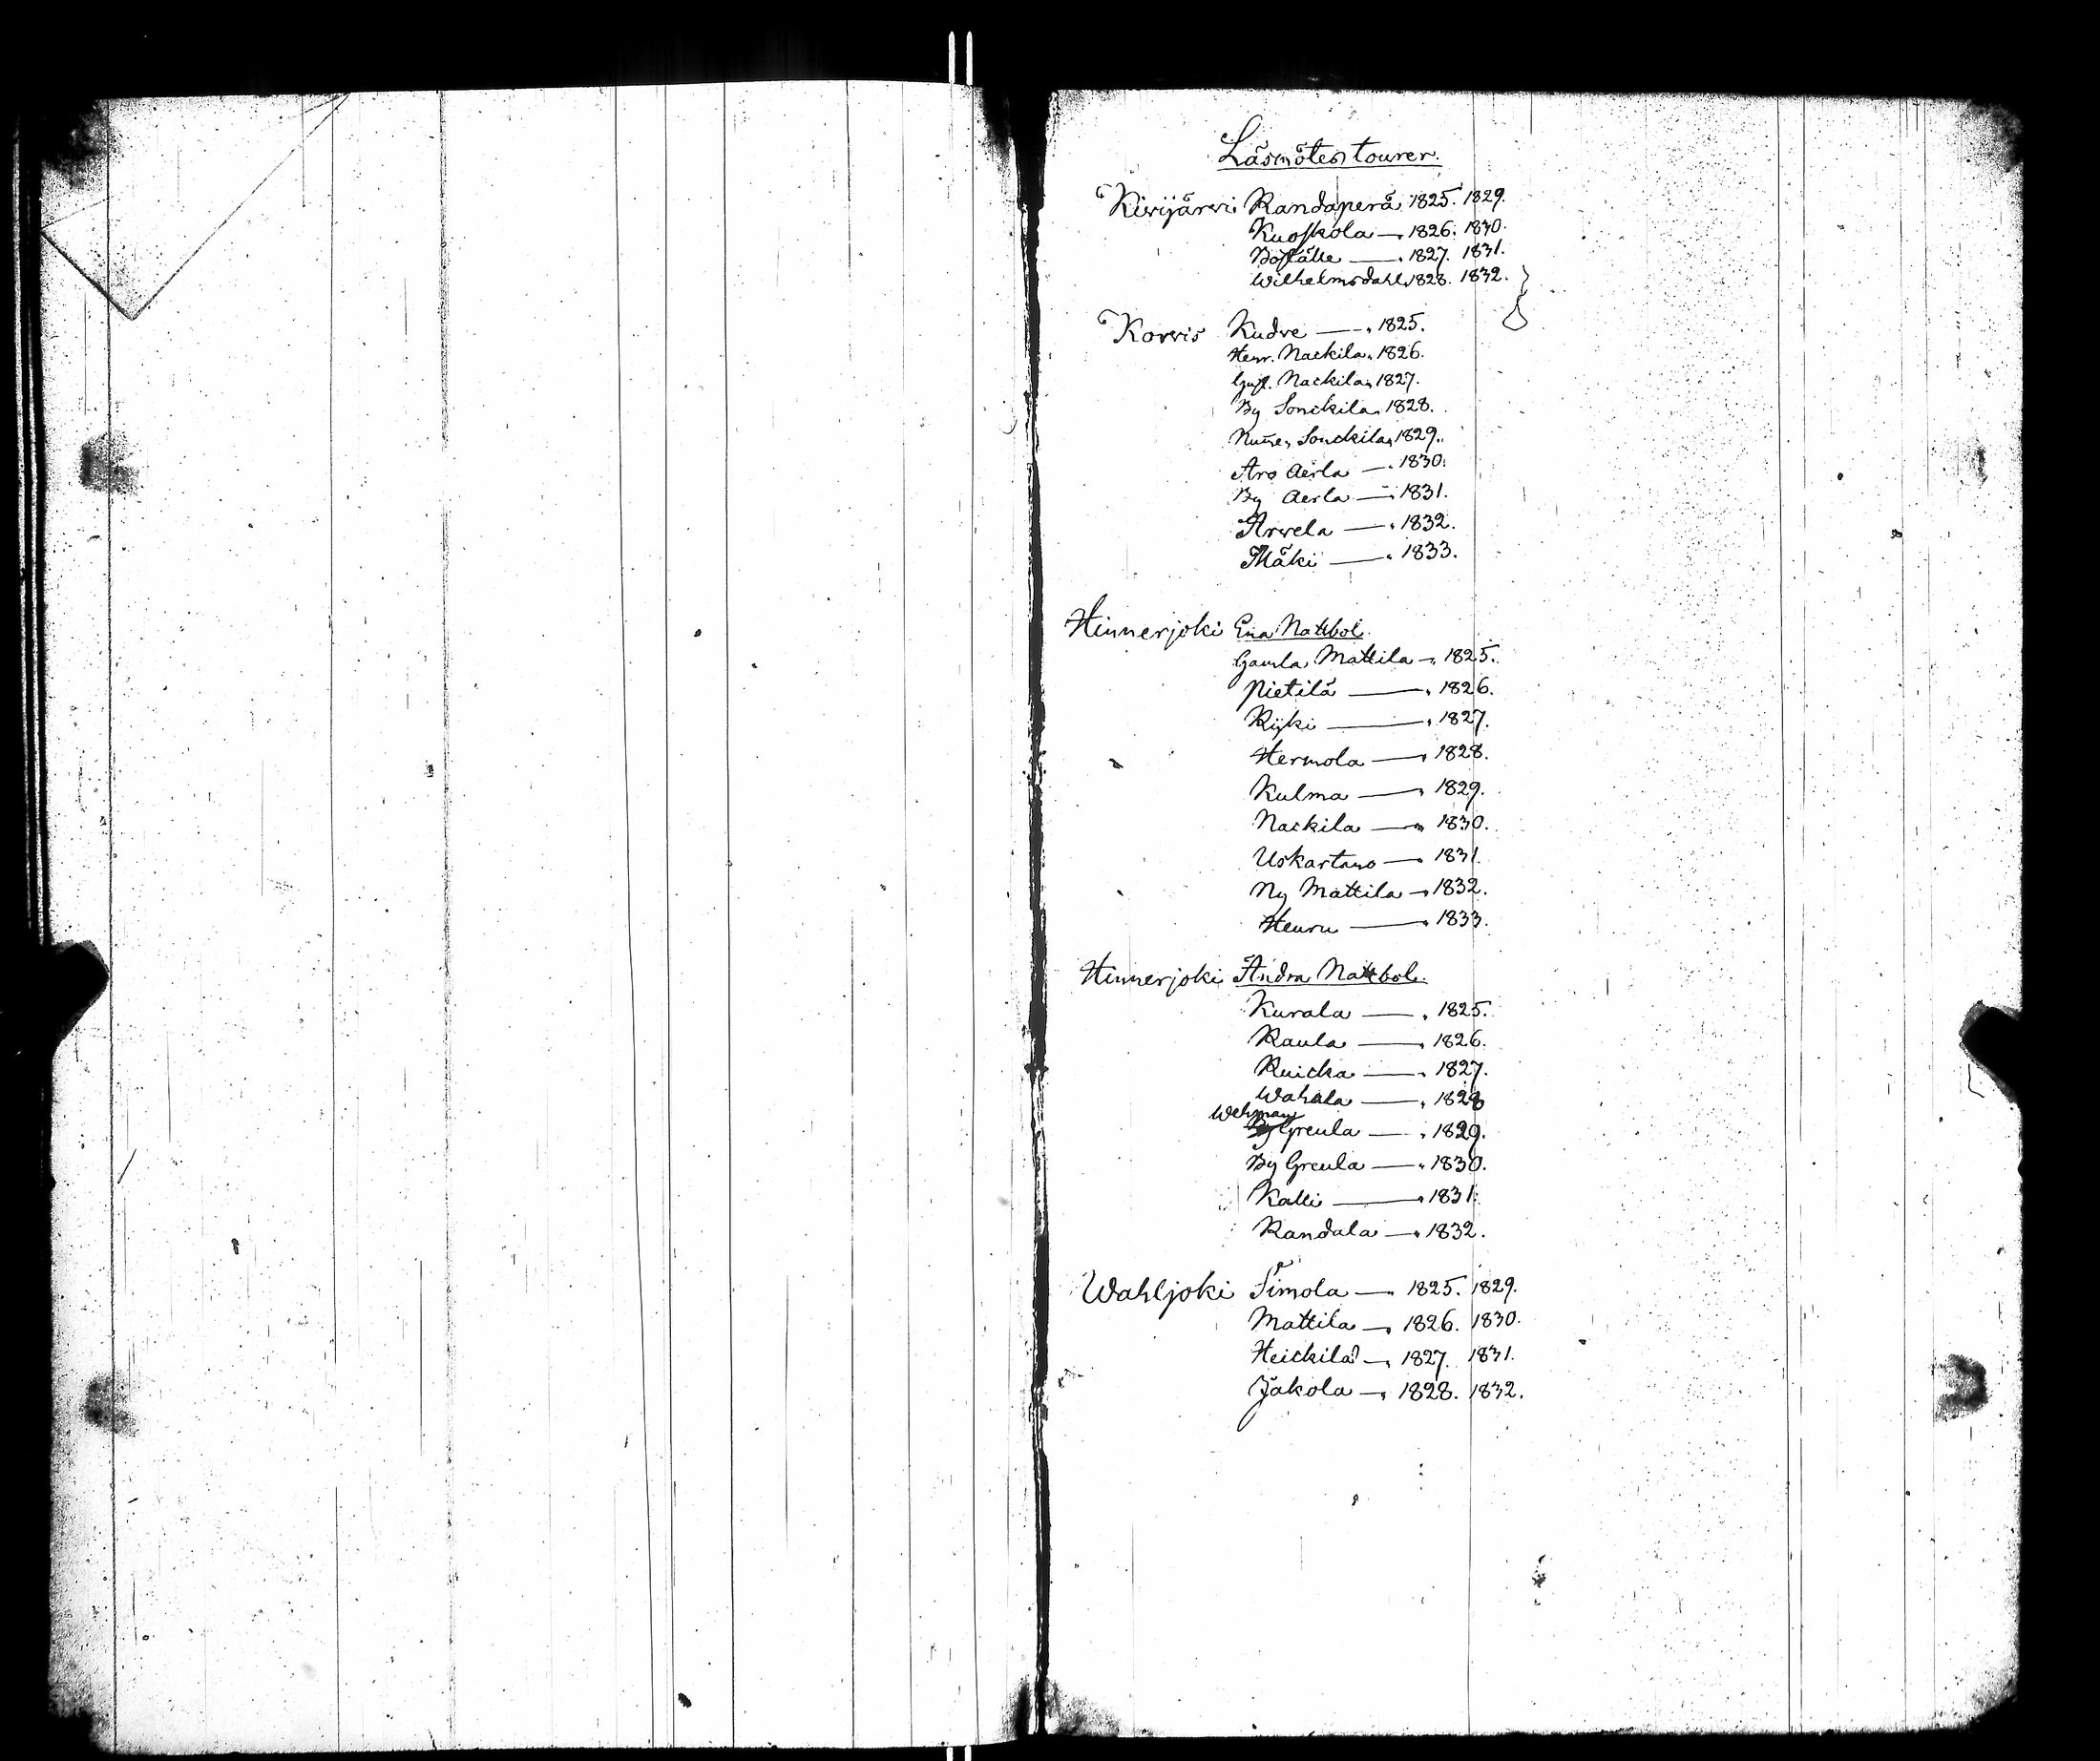 Läsmötes tourer.
Kivijärvi Randaperä 1825. 1829.
Kuoskola — 1826. 1830.
Boställe — 1827. 1831.
Wilhelmsdahl 1828. 1832.
Korvis Kudre — 1825.
Henr. Nackila 1826.
Gust. Nackila 1827.
By Sonckila 1828.
Sonckila 1829.
Aro Aerla — 1830.
By Aerla — 1831.
Arvela — 1832.
Mäki — 1833.
Hinnerjoki Ena Nattbol.
Gamla Mattila — 1825.
Pietilä — 1826.
Ryki — 1827.
Hermola — 1828.
Kulma — 1829.
Nackila — 1830.
Uskartano — 1831.
Ny Mattila — 1832.
Heuru — 1833.
Hinnerjoki Andra Nattbol.
Kurala — 1825.
Raula — 1826.
Ruicka — 1827.
Wahala — 1828
Wehman
Greula — 1829.
By Greula — 1830.
Kalli — 1831.
Randala — 1832.
Wahljoki Simola — 1825. 1829.
Mattila — 1826. 1830.
Heickilä — 1827. 1831.
Jakola — 1828. 1832.